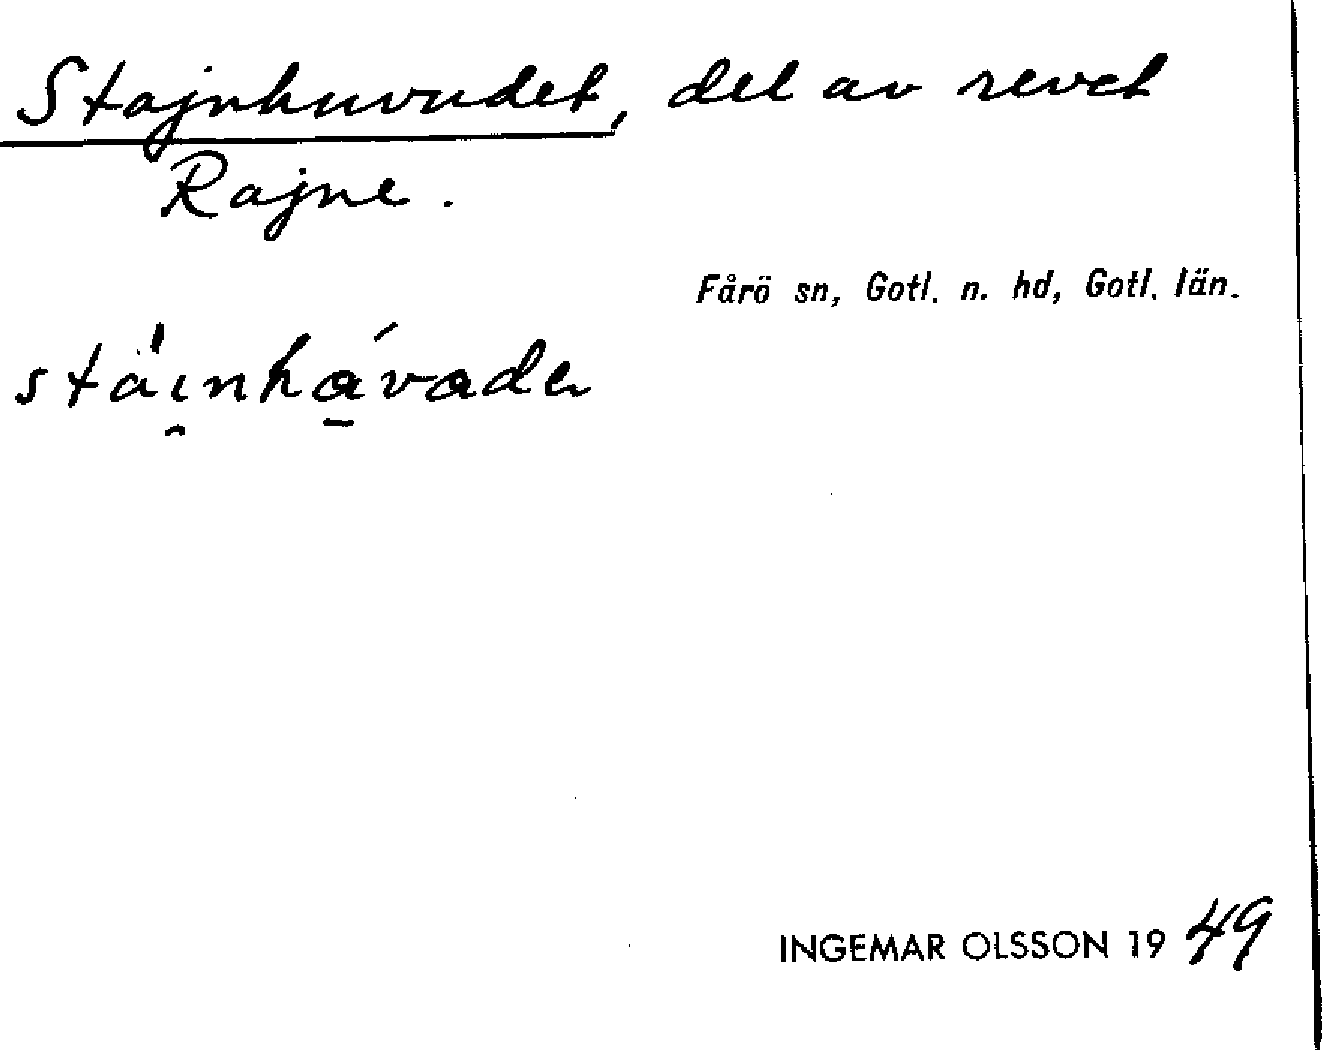 Stajnhuvudet, del av revet
Rajne.
Fårö sn, Gotl. n. hd, Gotl. län.
INGEMAR OLSSON 1949